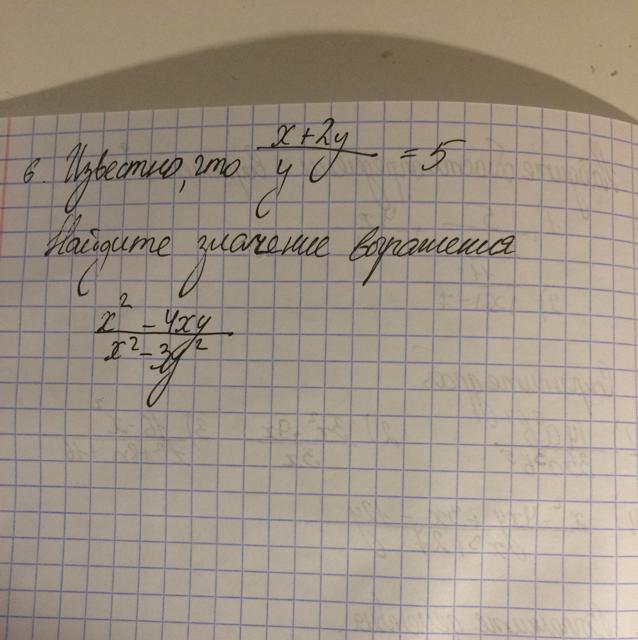 6. Известно, что (x+2y)/y = 5
Найдите значение выражения
(x² - 4xy)/(x² - 3y²)